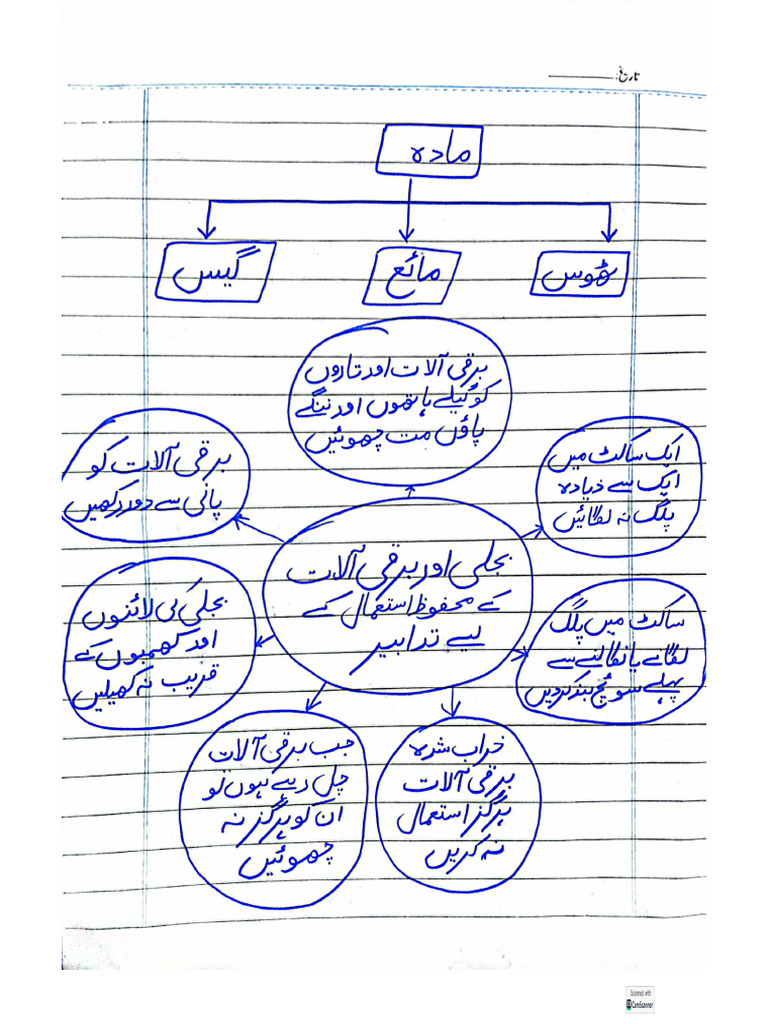 تاریخ:
مادہ
ٹھوس
مائع
گیس
برقی آلات اور تاروں
کو گیلے ہاتھوں اور ننگے
پاؤں مت چھوئیں
ایک ساکٹ میں
ایک سے زیادہ
پلگ نہ لگائیں
برقی آلات کو
پانی سے دور رکھیں
بجلی اور برقی آلات
کے محفوظ استعمال کے
لیے تدابیر
ساکٹ میں پلگ
لگانے یا نکالنے سے
پہلے سوئچ بند کر دیں
بجلی کی لائنوں
اور کھمبوں کے
قریب نہ کھیلیں
خراب شدہ
برقی آلات
ہرگز استعمال
نہ کریں
جب برقی آلات
چل رہے ہوں تو
ان کو ہرگز نہ
چھوئیں
Scanned with
CamScanner